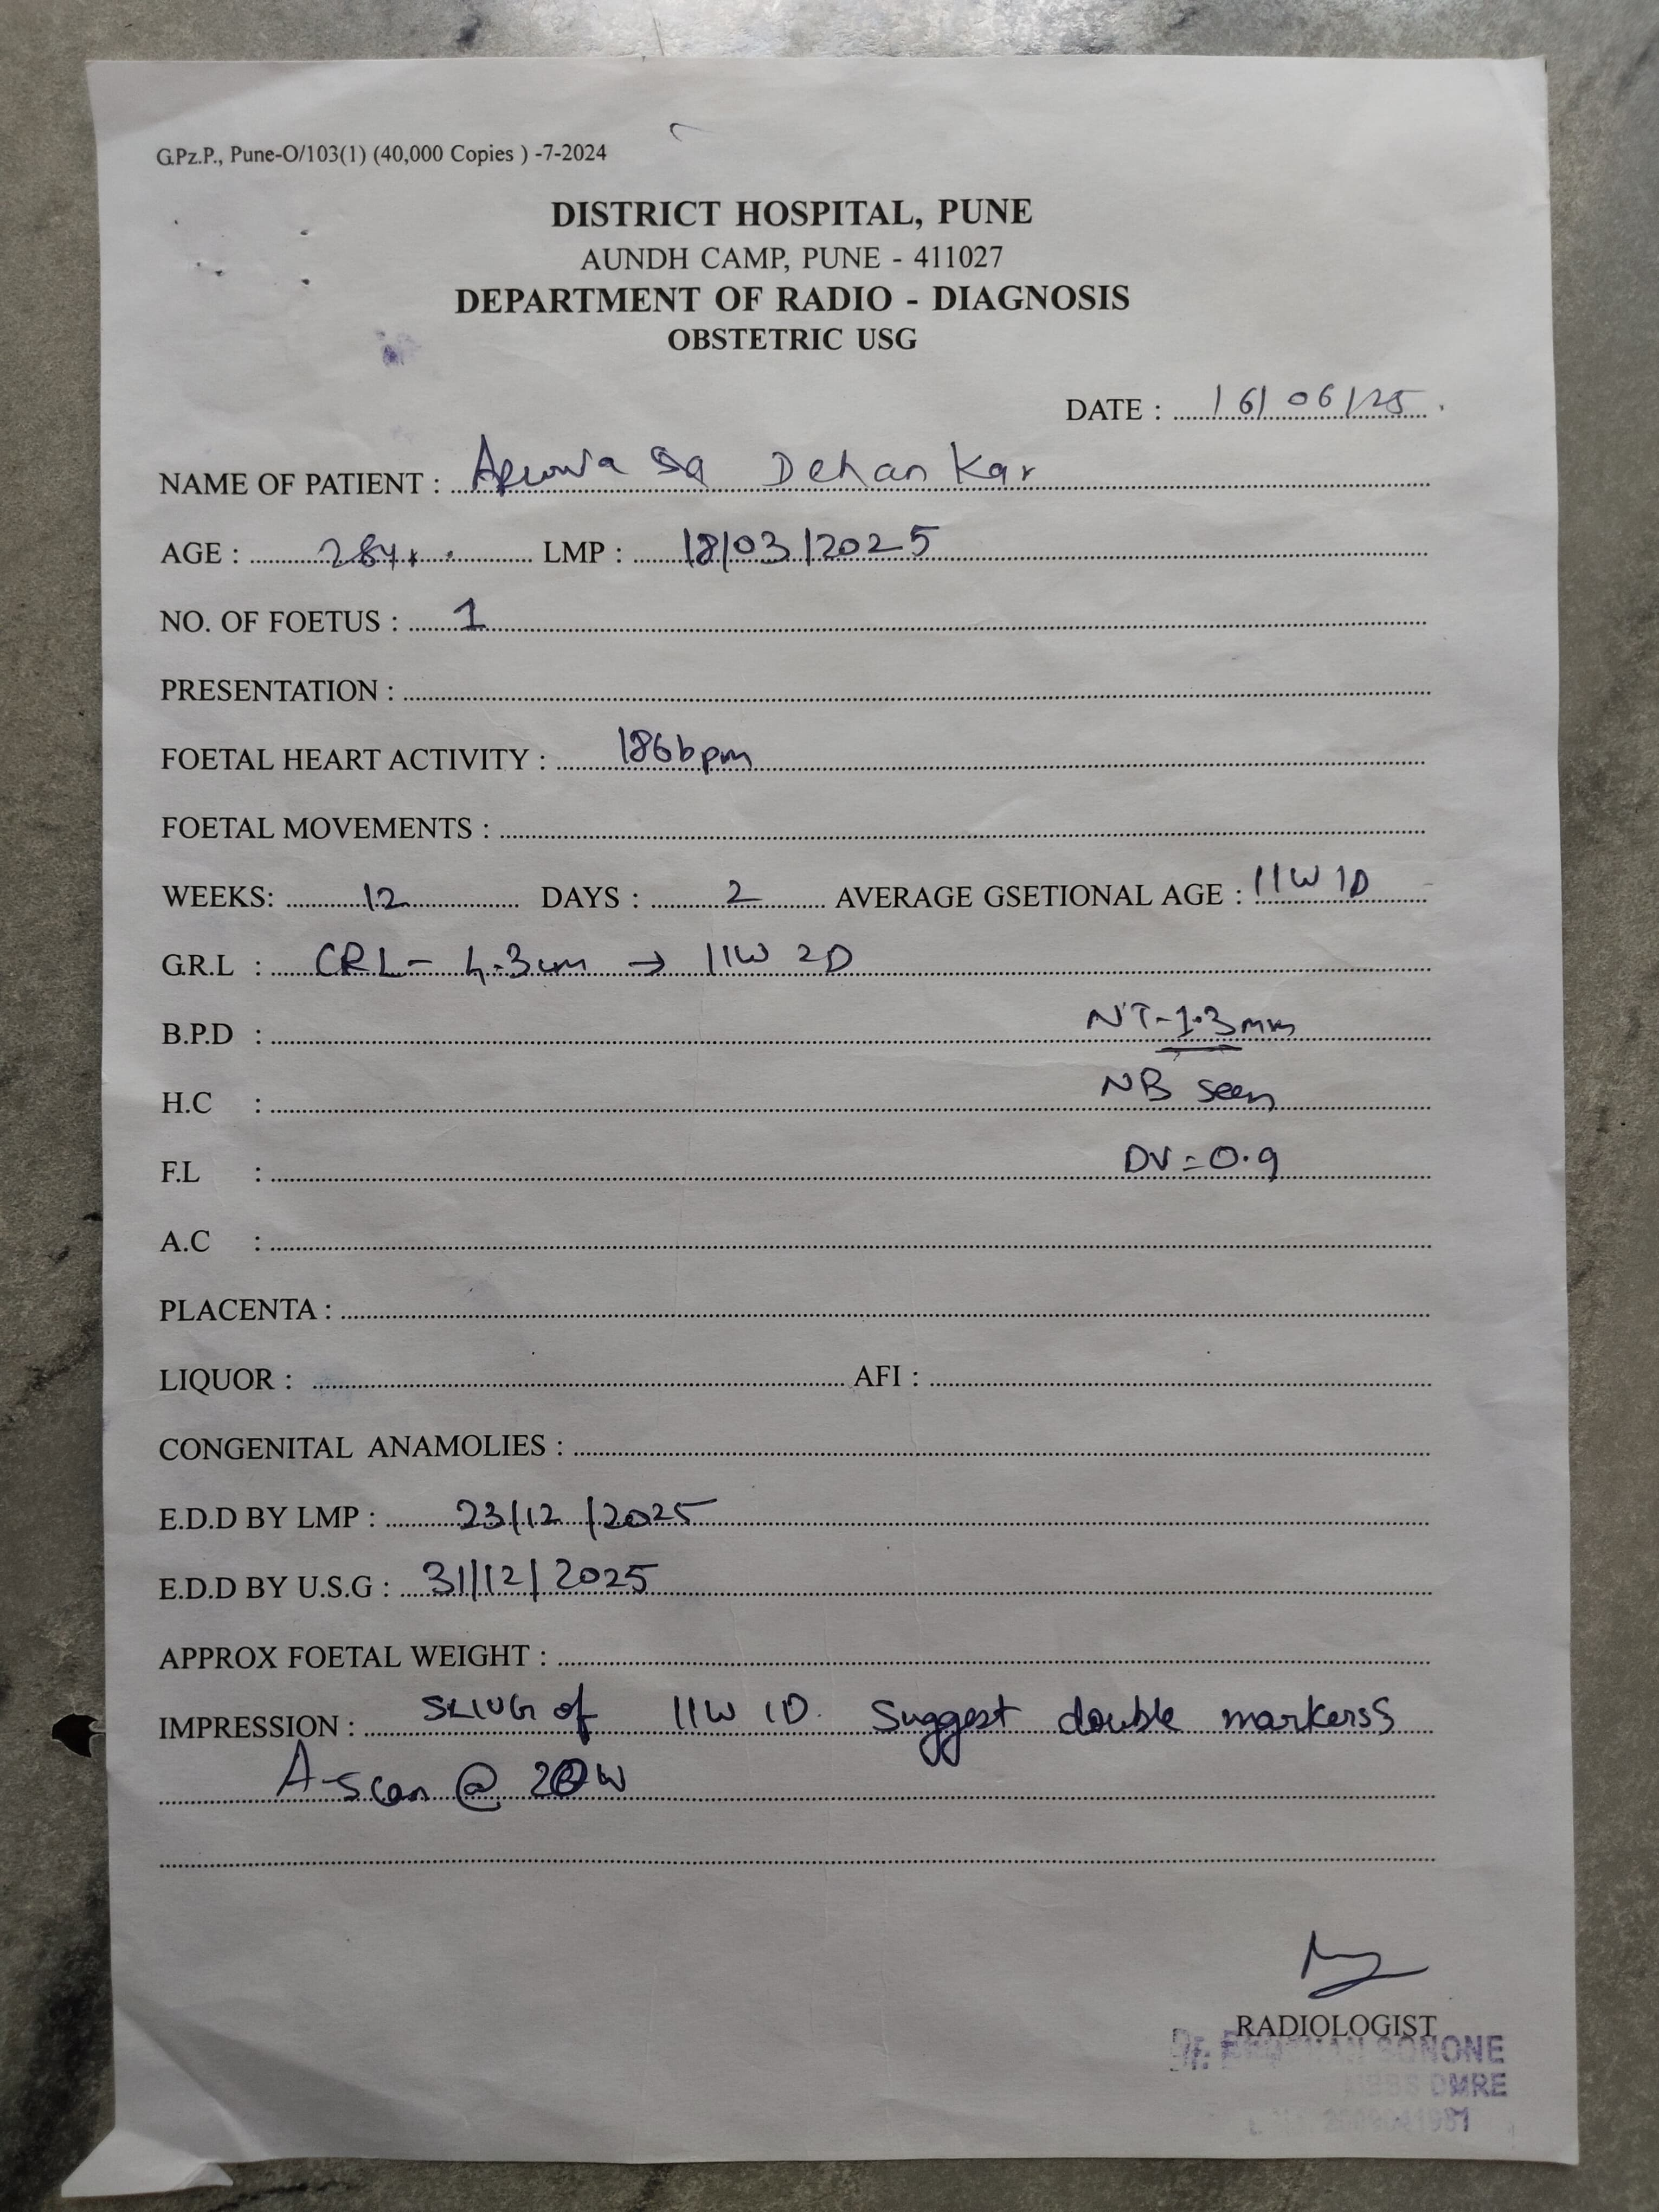 G.Pz.P., Pune-O/103(1) (40,000 Copies ) -7-2024
DISTRICT HOSPITAL, PUNE
AUNDH CAMP, PUNE - 411027
DEPARTMENT OF RADIO - DIAGNOSIS
OBSTETRIC USG
DATE : 16/06/25
NAME OF PATIENT : Dehankar
AGE : 28yr. LMP : 18/03/2025
NO. OF FOETUS : 1
PRESENTATION :
FOETAL HEART ACTIVITY : 186bpm
FOETAL MOVEMENTS :
WEEKS: 12 DAYS : 2 AVERAGE GSETIONAL AGE : 11W 1D
G.R.L : CRL - 4.3cm → 11W 2D
B.P.D : NT-1.3mm
H.C : NB seen
F.L : DV = 0.9
A.C :
PLACENTA :
LIQUOR : AFI :
CONGENITAL ANAMOLIES :
E.D.D BY LMP : 23/12/2025
E.D.D BY U.S.G : 31/12/2025
APPROX FOETAL WEIGHT :
IMPRESSION : SLIUG of 11W 1D. Suggest double markers
A-scan @ 20W
RADIOLOGIST
Dr. SONONE
MBBS DMRE